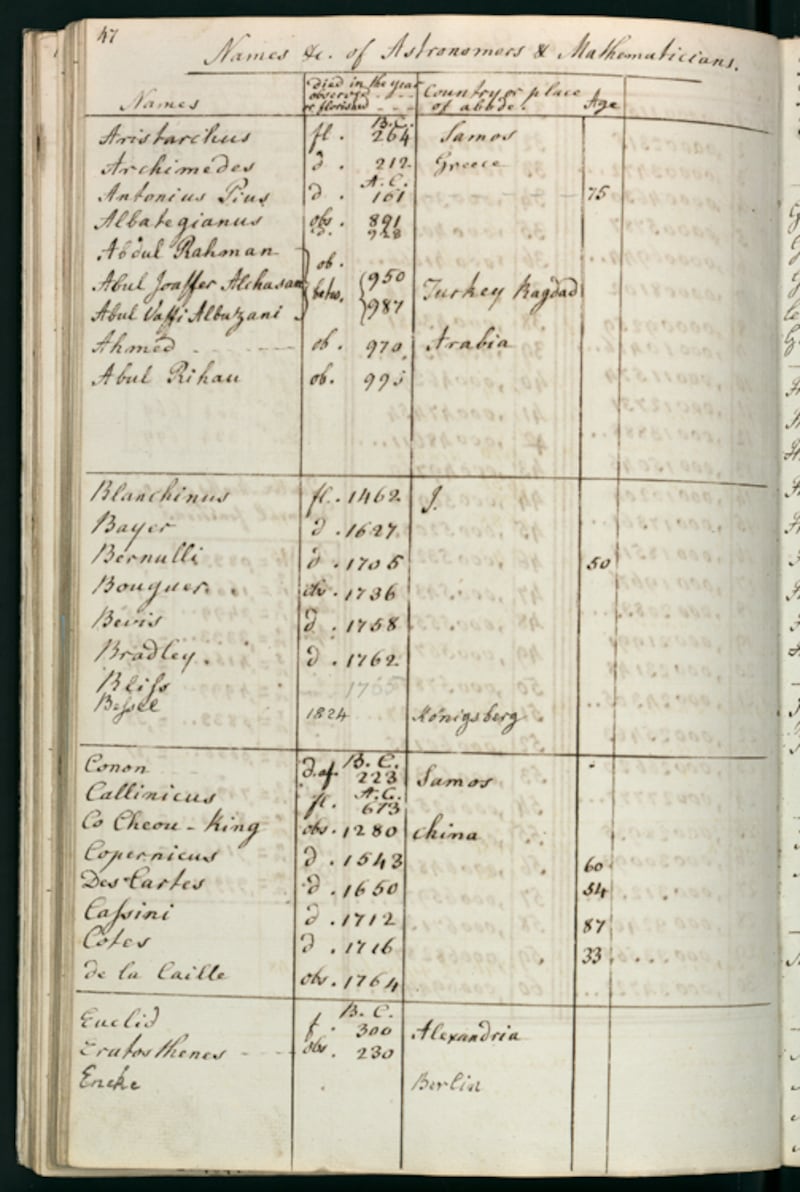 47
Names &c. of Astronomers & Mathematicians.
Names
died in the year
observed
or florished
Country or place
of abode.
Age
B.C.
Aristarchus fl. 264 Samos
Archimedes d. 212 Greece
A.C.
Antonius Pius d. 161 75
Albategianus obs. 891
d. 928
Abdul Rahman
ob.
Abul Joaffer Alchasan betw. 950 Turkey Bagdad
Abul Vaffi Albuzani 987
Ahmed ob. 970 Arabia
Abul Rihau ob. 995
Blanchinus fl. 1462 J.
Bayer d. 1627
Bernulli d. 1705 50
Bouguer. 1736
Bevis d. 1758
Bradley. d. 1762
Bliss 1765
Bessel 1824 Königsberg
B.C.
Conon d. af. 223 Samos
A.C.
Callinicus fl. 673
Co Cheou-King obs. 1280 China
Copernicus d. 1543 60
Des Cartes d. 1650 54
Cassini d. 1712 87
Cotes d. 1716 33
de la Caille obs. 1764
B.C.
Euclid f. 300 Alexandria
Eratosthenes obs. 230
Encke Berlin